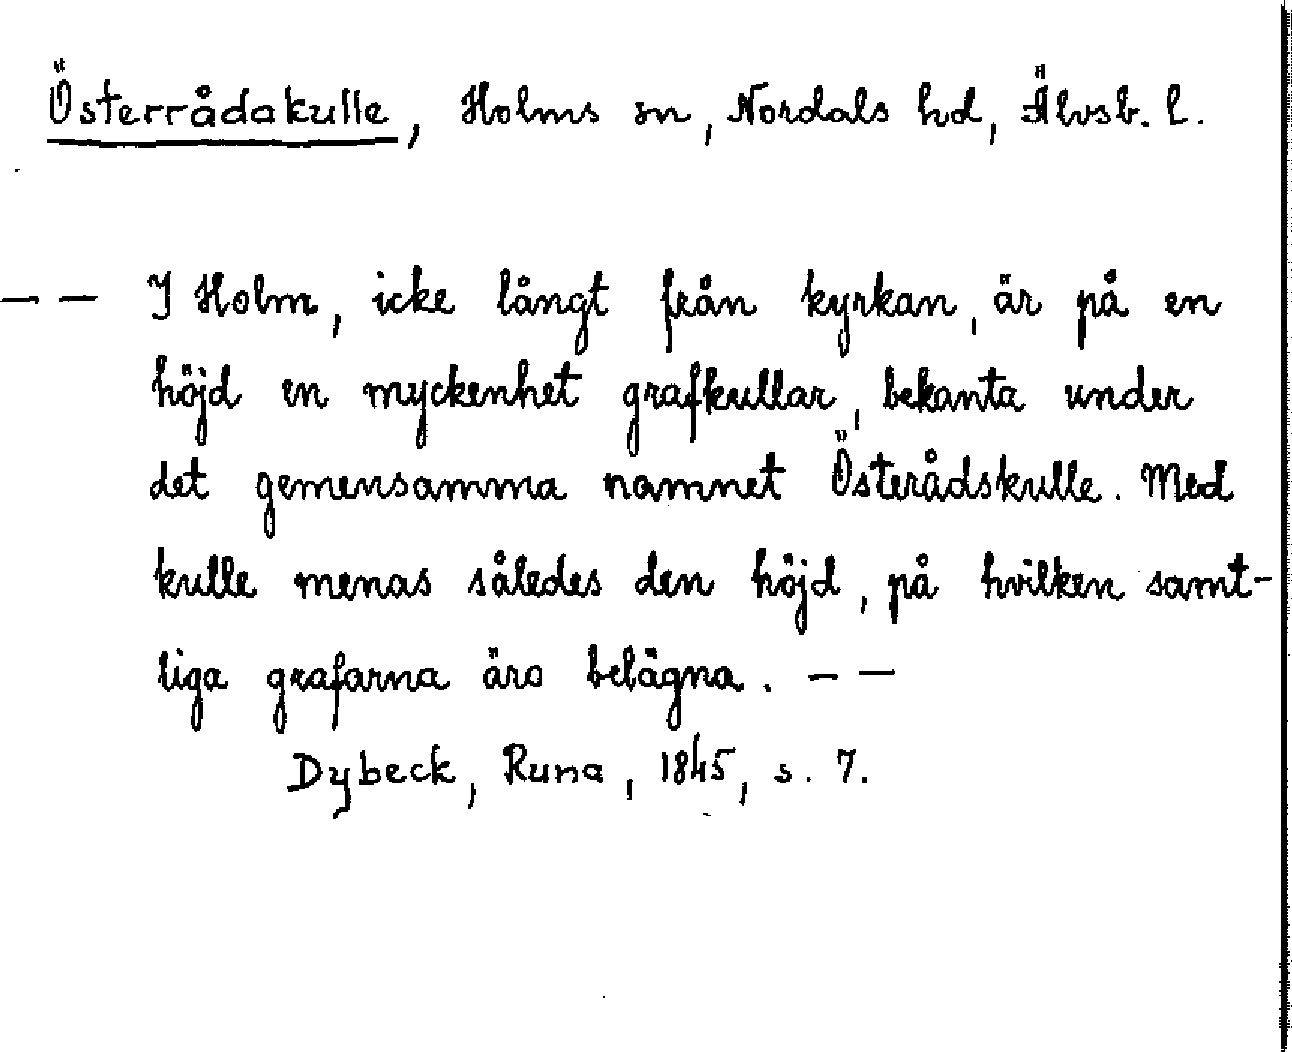 Österrådakulle, Holms sn, Nordals hd, Älvsb. l.
— — I Holm, icke långt från kyrkan, är på en
höjd en myckenhet grafkullar, bekanta under
det gemensamma namnet Österådskulle. Med
kulle menas således den höjd, på hvilken samt-
liga grafarna äro belägna. — —
Dybeck, Runa, 1845, s. 7.